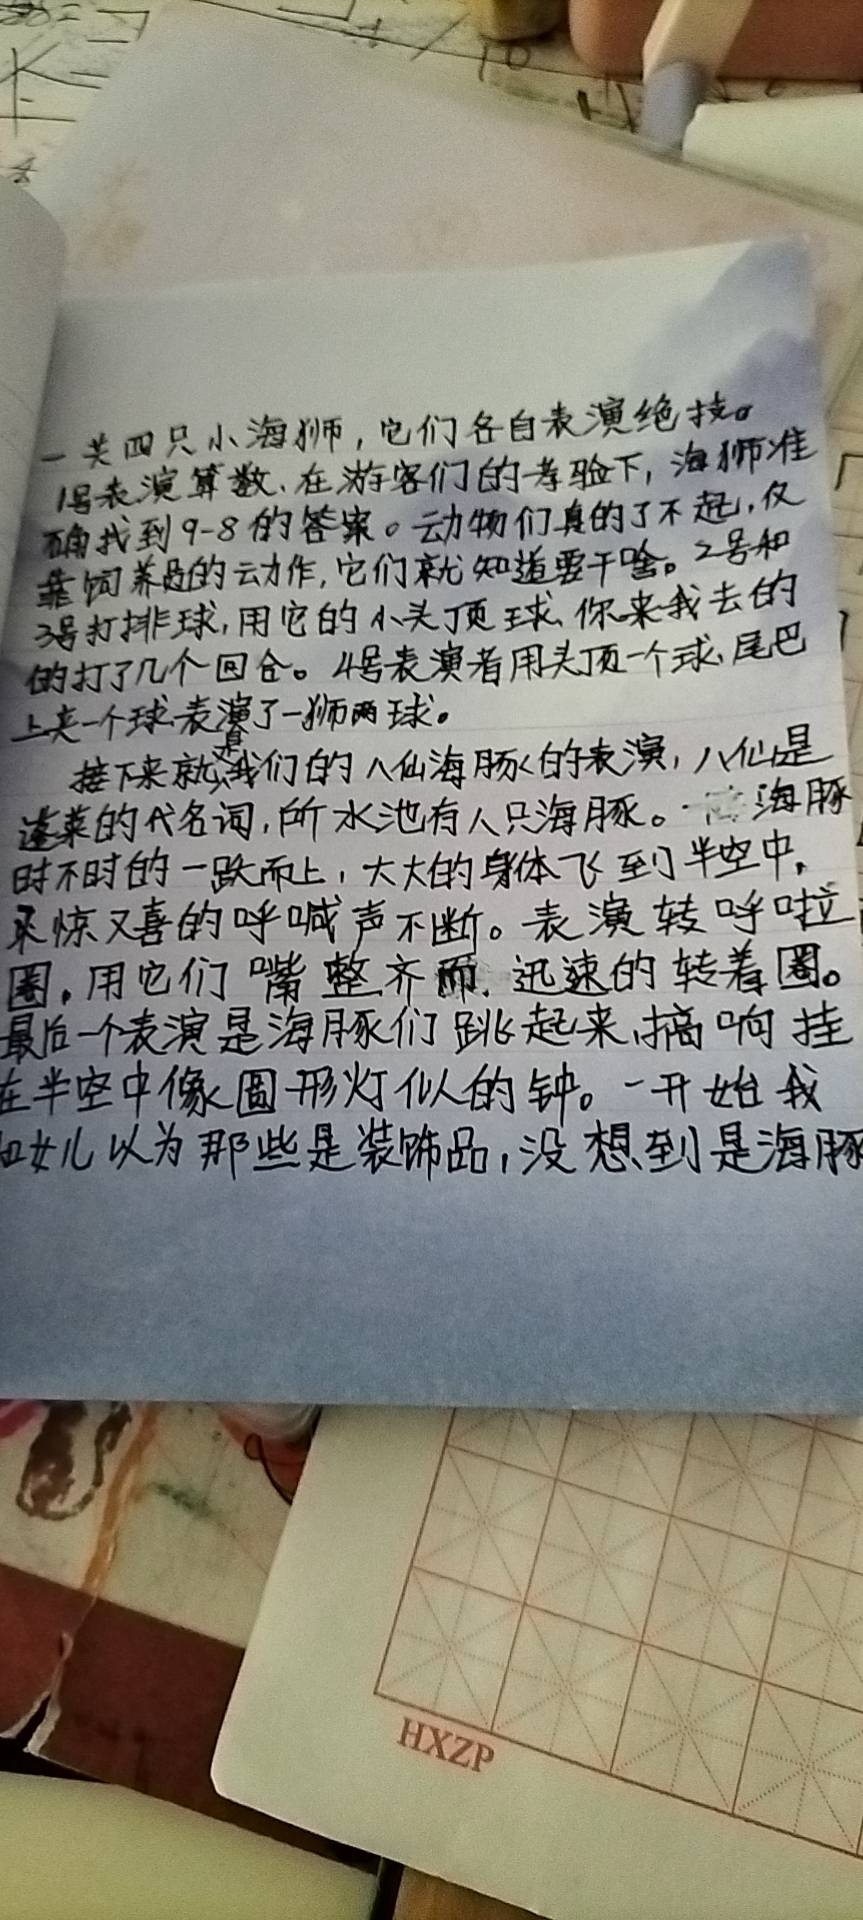 一共四只小海狮,它们各自表演绝技。
1号表演算数、在游客们的考验下,海狮准
确找到9-8的答案。动物们真的了不起,仅
靠饲养员的动作,它们就知道要干啥。2号和
3号打排球,用它的小头顶球、你来我去的
的打了几个回合。4号表演者用头顶一个球、尾巴
上夹一个球表演了一狮两球。
接下来就是我们的八仙海豚的表演,八仙是
蓬莱的代名词,所水池有八只海豚。海豚
时不时的一跃而上,大大的身体飞到半空中,
又惊又喜的呼喊声不断。表演转呼啦
圈,用它们嘴整齐而迅速的转着圈。
最后一个表演是海豚们跳起来,搞响挂
在半空中像圆形灯似的钟。一开始我
和女儿以为那些是装饰品,没想到是海豚
HXZP